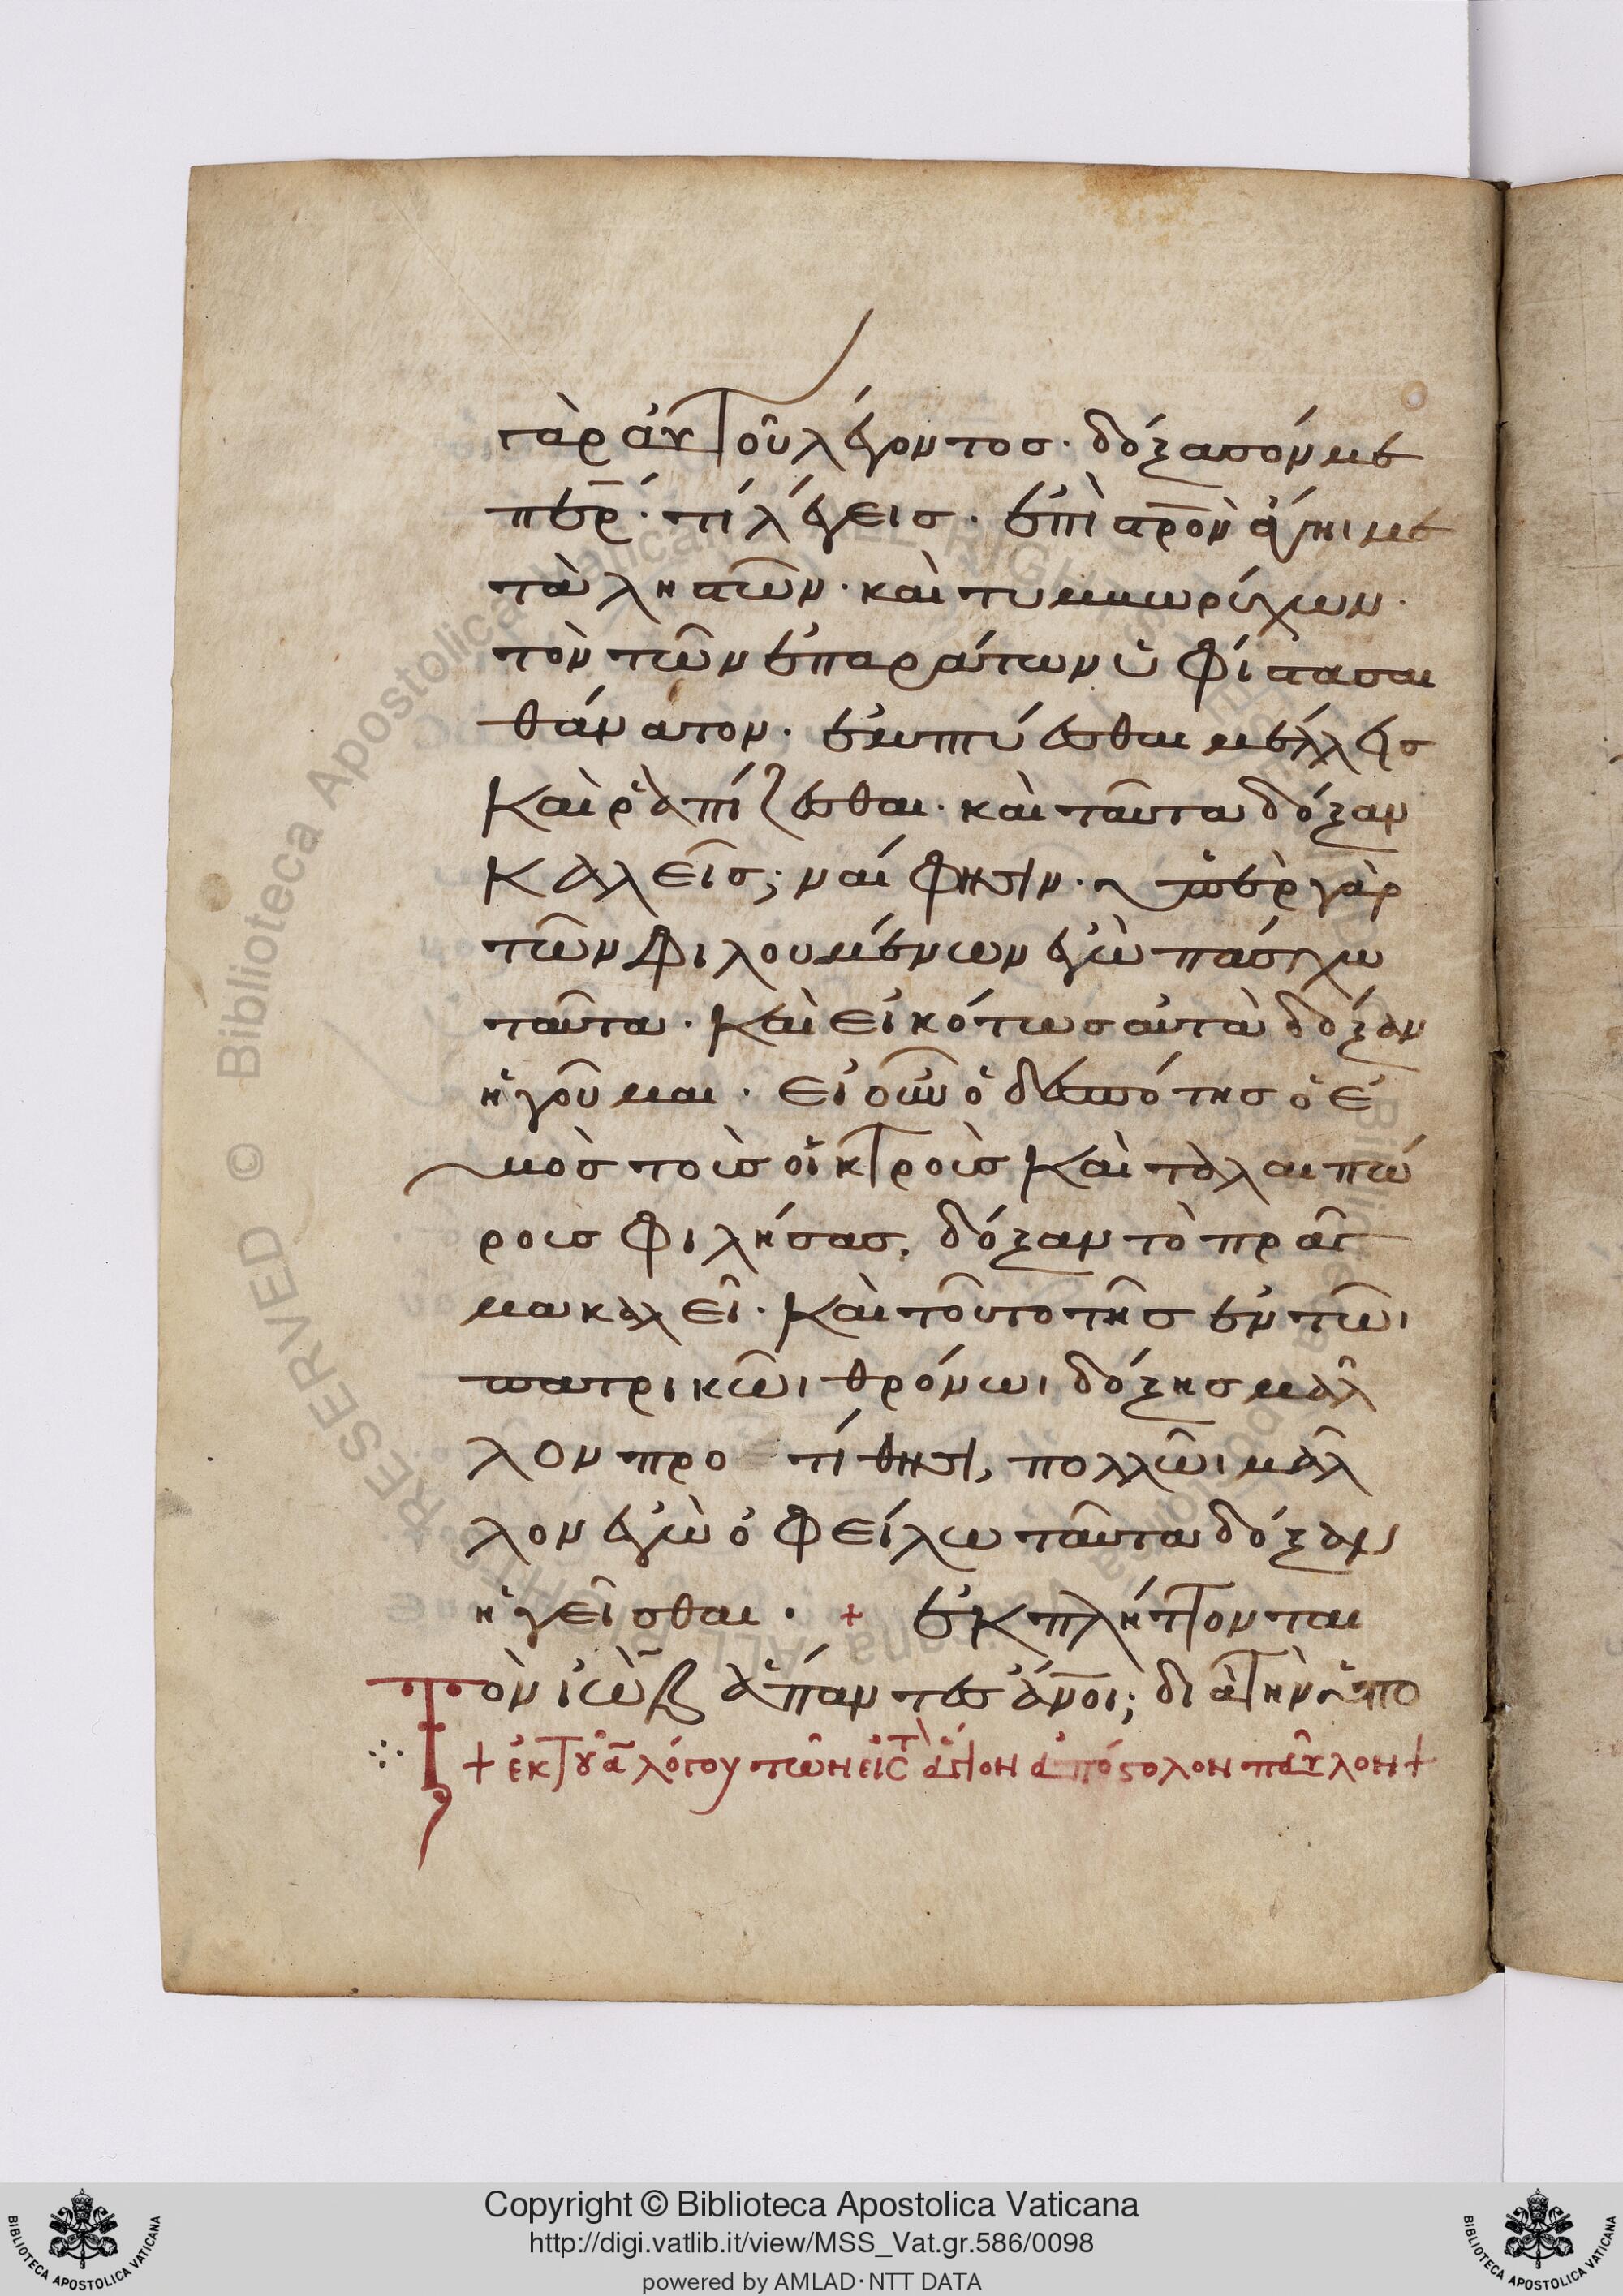 γὰρ αὐτοῦ λέγοντος· δόξασόν με
περ· τί λέγεις· ἐπὶ σρὸν ἀγηι με
τὰ ληστῶν· καὶ τυμβωρύχων·
τὸν τῶν ἐπαράτων ὑφίστασαι
θάνατον· ἐμπτύεσθαι μέλλεις
καὶ ῥαπίζεσθαι· καὶ ταῦτα δόξαν
καλεῖς; ναί φησιν· ὑπὲρ γὰρ
τῶν φιλουμένων ἐγὼ πάσχω
ταῦτα· καὶ εἰκότως αὐτὰ δόξαν
ἡγοῦμαι· εἰ οὖν ὁ δεσπότης ὁ ἐ
μὸς τοὺς οἰκτροὺς καὶ ταλαιπώ
ρους φιλήσας, δόξαν τὸ πρᾶγ
μα καλεῖ· καὶ τοῦτο τῆς ἐν τῶι
πατρικῶι θρόνωι δόξης μᾶλ
λον προτίθησι, πολλῶι μᾶλ
λον ἐγὼ ὀφείλω ταῦτα δόξαν
ἡγεῖσθαι· + ἐκπλήττονται
τὸν ἰὼβ ἅπαντες ἄνοι; διὰ τὴν ὑπο
+ ἐκ τοῦ α λόγου τῶν εἰς τὸν ἅγιον ἀπόστολον παῦλον +
Copyright © Biblioteca Apostolica Vaticana
http://digi.vatlib.it/view/MSS_Vat.gr.586/0098
powered by AMLAD · NTT DATA
BIBLIOTECA APOSTOLICA VATICANA
BIBLIOTECA APOSTOLICA VATICANA